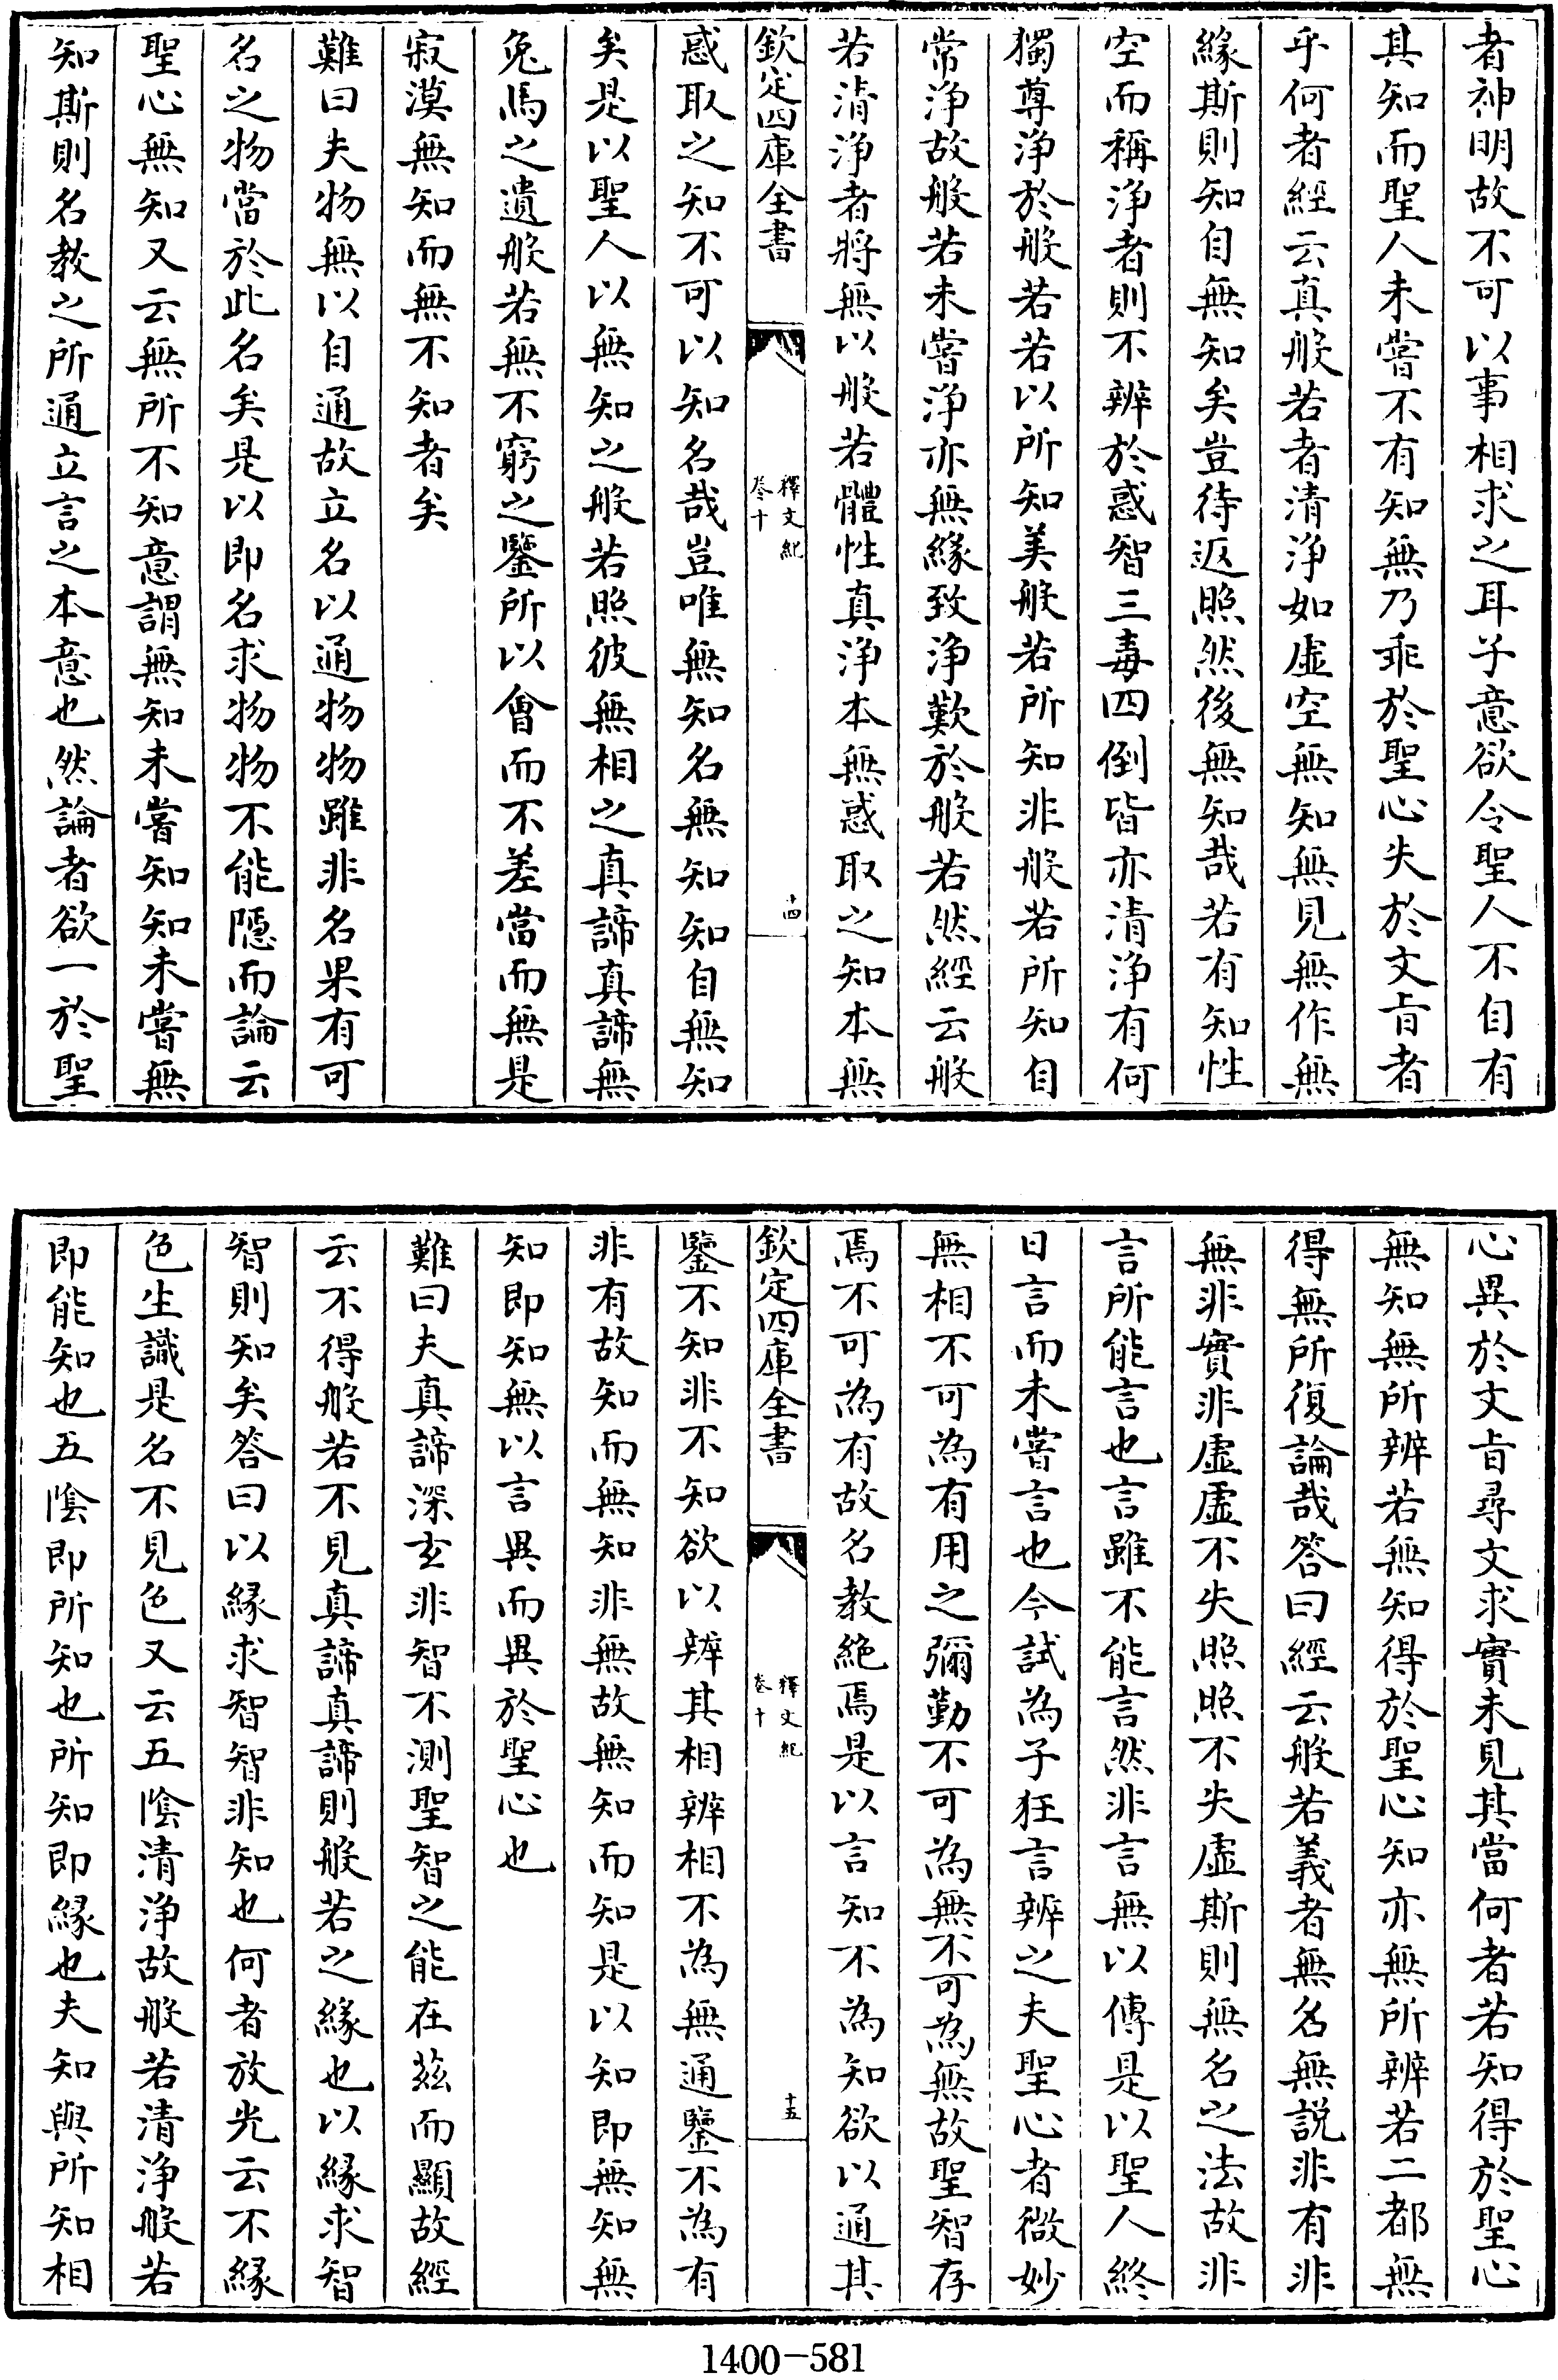 者神明故不可以事相求之耳子意欲令聖人不自有
其知而聖人未嘗不有知無乃乖於聖心失於文㫖者
乎何者經云真般若者清浄如虚空無知無見無作無
緣斯則知自無知矣豈待返照然後無知哉若有知性
空而稱浄者則不辨於惑智三毒四倒皆亦清浄有何
獨尊浄於般若若以所知美般若所知非般若所知自
常浄故般若未嘗浄亦無緣致浄歎於般若然經云般
若清浄者將無以般若體性真浄本無惑取之知本無
欽定四庫全書
釋文紀
卷十
十四
惑取之知不可以知名哉豈唯無知名無知知自無知
矣是以聖人以無知之般若照彼無相之真諦真諦無
兔馬之遺般若無不窮之鑒所以會而不差當而無是
寂漠無知而無不知者矣
難曰夫物無以自通故立名以通物物雖非名果有可
名之物當於此名矣是以即名求物物不能隱而論云
聖心無知又云無所不知意謂無知未嘗知知未嘗無
知斯則名教之所通立言之本意也然論者欲一於聖
心異於文㫖尋文求實未見其當何者若知得於聖心
無知無所辨若無知得於聖心知亦無所辨若二都無
得無所復論哉答曰經云般若義者無名無説非有非
無非實非虚虚不失照照不失虚斯則無名之法故非
言所能言也言雖不能言然非言無以傳是以聖人終
日言而未嘗言也今試為子狂言辨之夫聖心者微妙
無相不可為有用之彌勤不可為無不可為無故聖智存
焉不可為有故名教絶焉是以言知不為知欲以通其
欽定四庫全書
釋文紀
卷十
十五
鑒不知非不知欲以辨其相辨相不為無通鑒不為有
非有故知而無知非無故無知而知是以知即無知無
知即知無以言異而異於聖心也
難曰夫真諦深玄非智不測聖智之能在兹而顯故經
云不得般若不見真諦真諦則般若之緣也以緣求智
智則知矣答曰以緣求智智非知也何者放光云不緣
色生識是名不見色又云五陰清浄故般若清浄般若
即能知也五陰即所知也所知即緣也夫知與所知相
1400-581